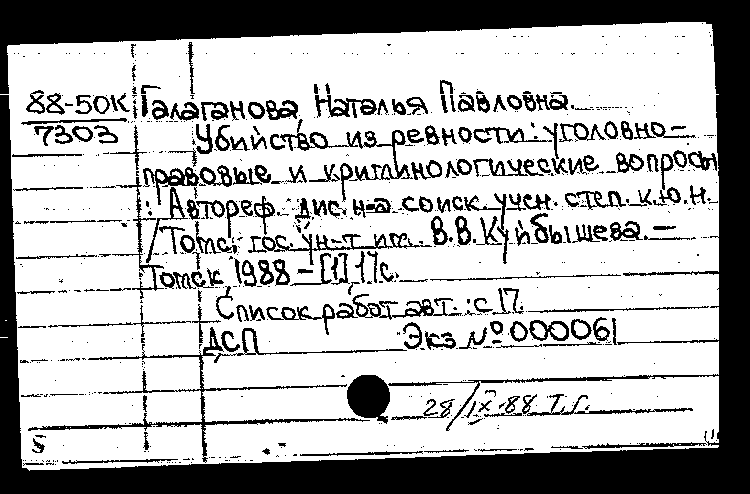 88-50К Галаганова, Наталья Павловна.
7303 Убийство из ревности: уголовно-
правовые и криминологические вопросы
: Автореф. дис. на соиск. учен. степ. к.ю.н.
/ Томс. гос. ун-т им. В.В. Куйбышева. —
Томск, 1988 – [1], 17 с.
Список работ авт.: с 17.
ДСП Экз № 000061
28/IX-88 Т.Г.